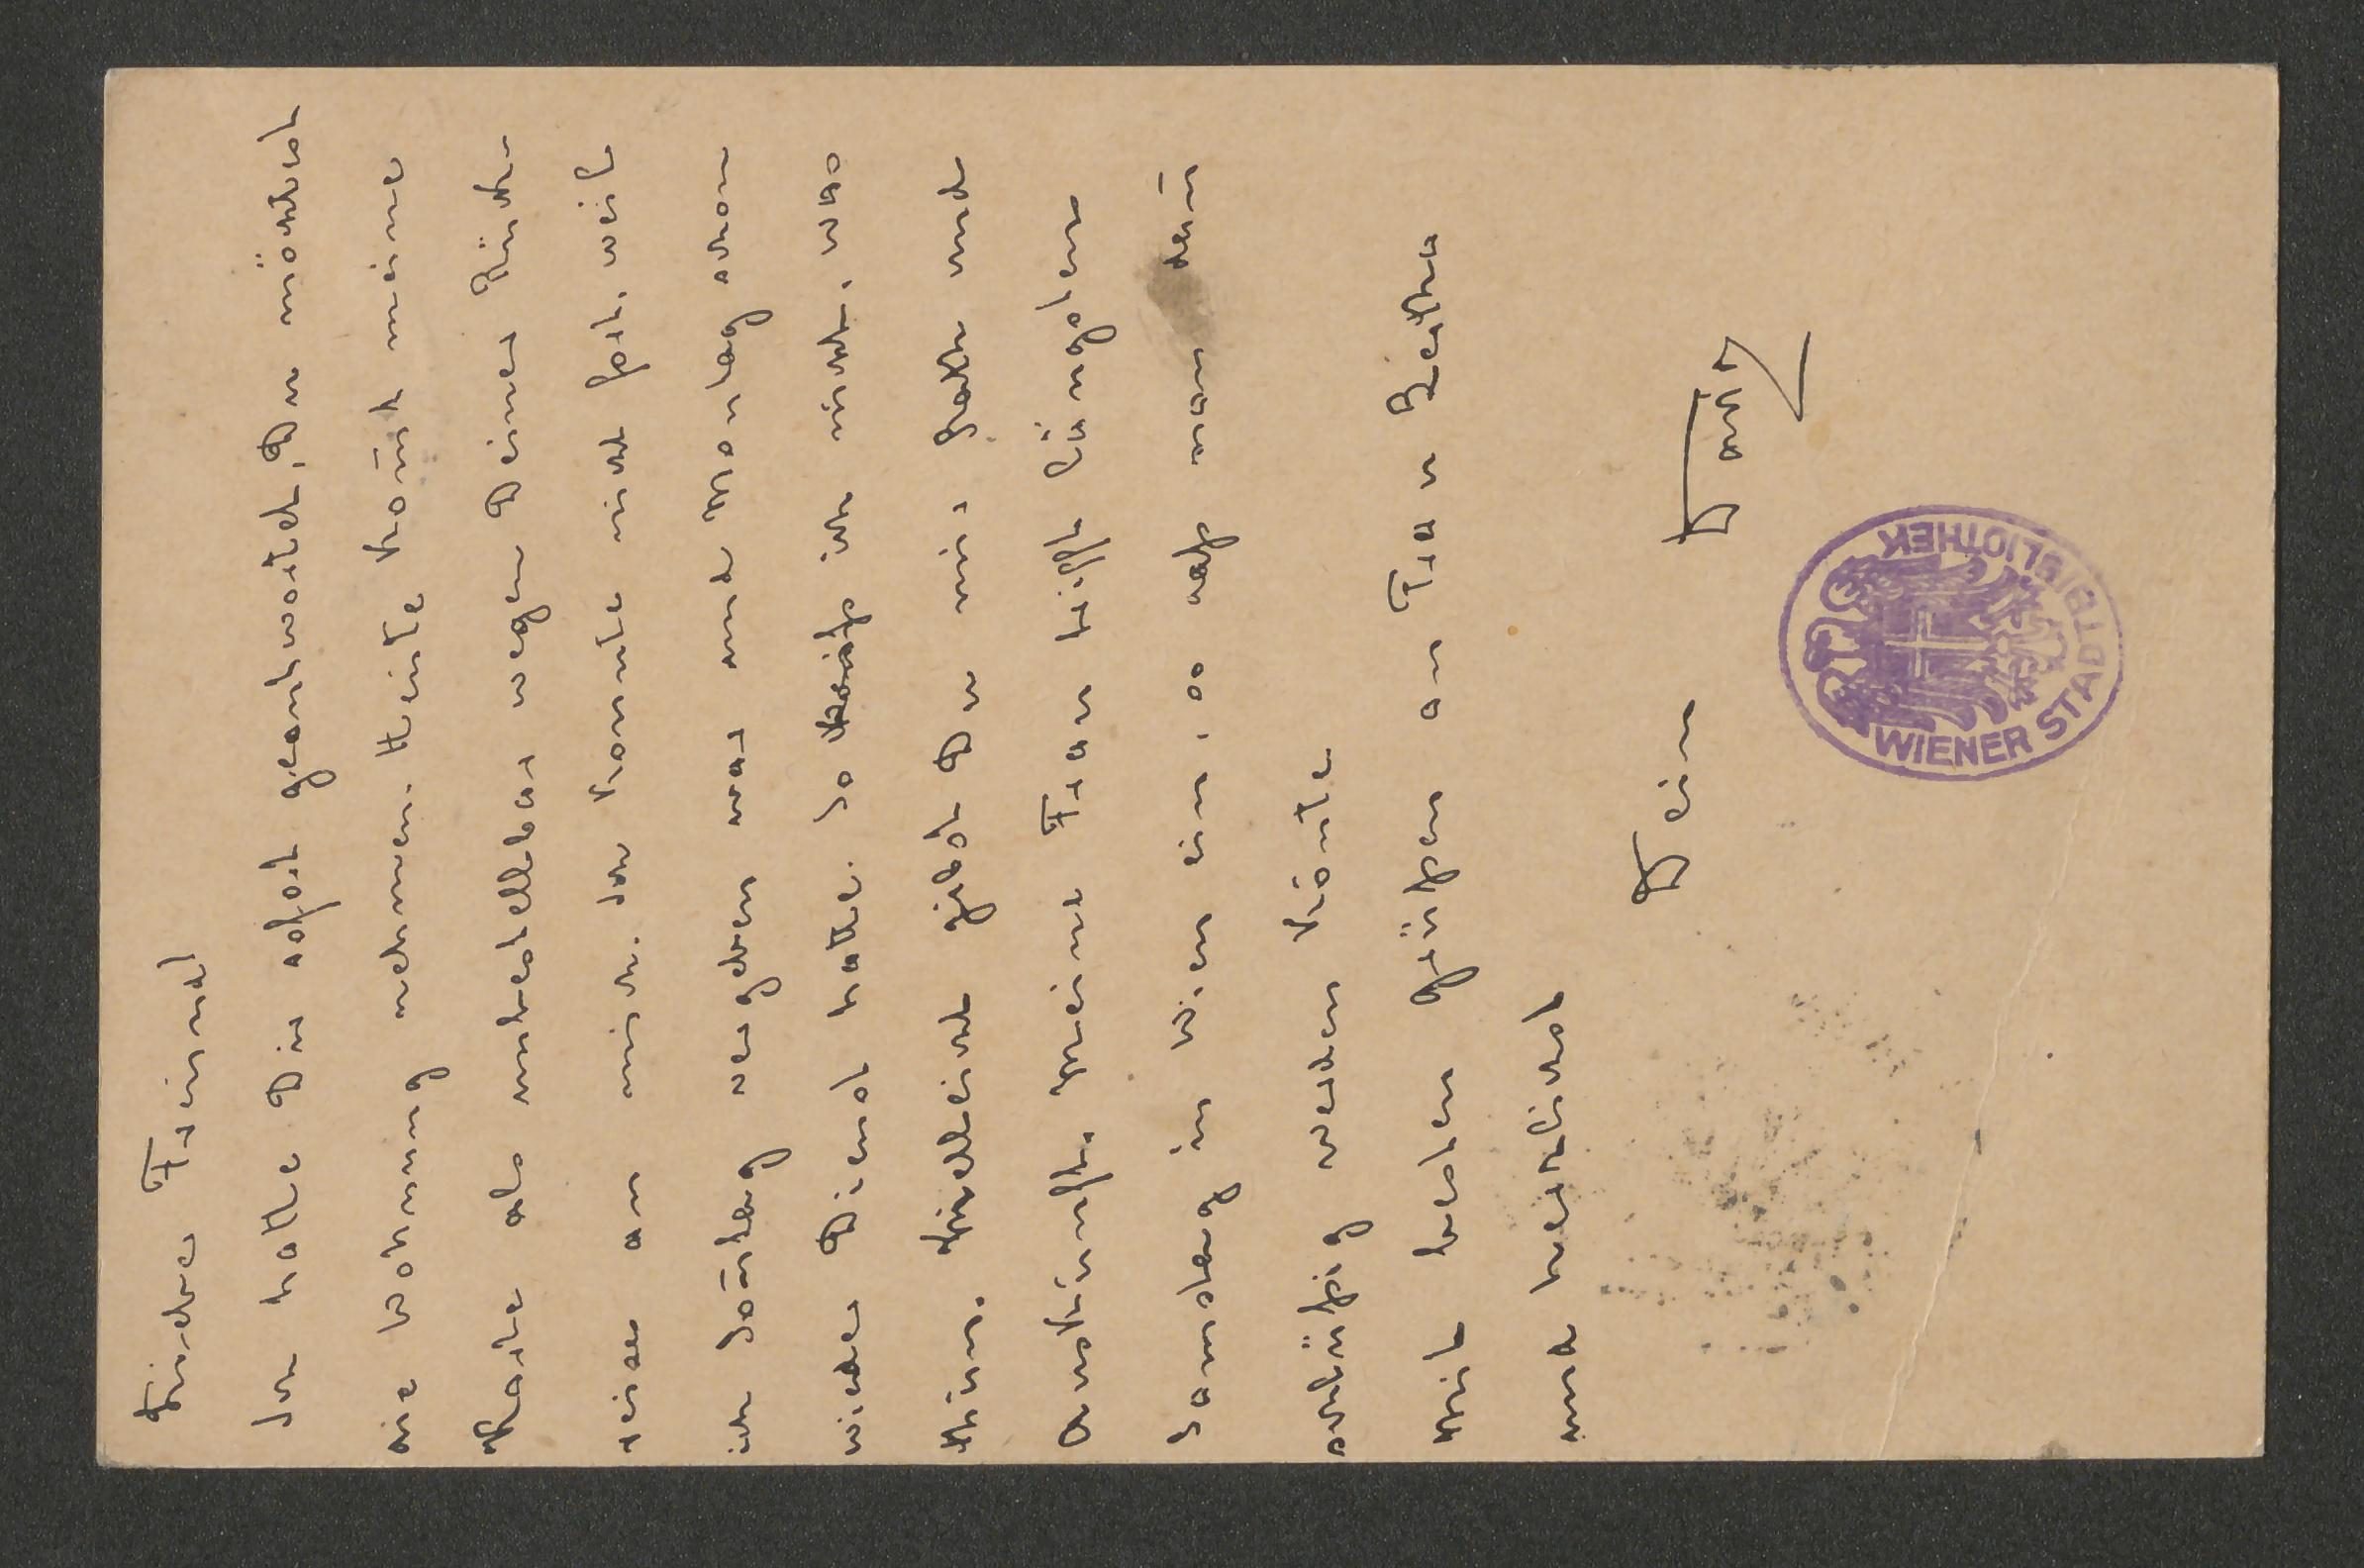 Lieber Freund
Ich hatte Dir sofort geantwortet, Du möchtest
die Wohnung nehmen. Heute kom̄t meine
Karte als unbestellbar wegen Deiner
reise an mich. Ich konnte nicht weil
ich Son̄tag vergeben war und Montag schon
wieder Dienst hatte. So weiß ich nicht, was
thun. Vielleicht gibst Du mir bald
Auskunft. Meine Frau trifft längstens
Samstag in Wien ein, so daß man dan̄
schlüßig werden kön̄te
Mit besten Grüßen an Frau
und herzlichst
Dein
WIENER STADTBIBLIOTHEK